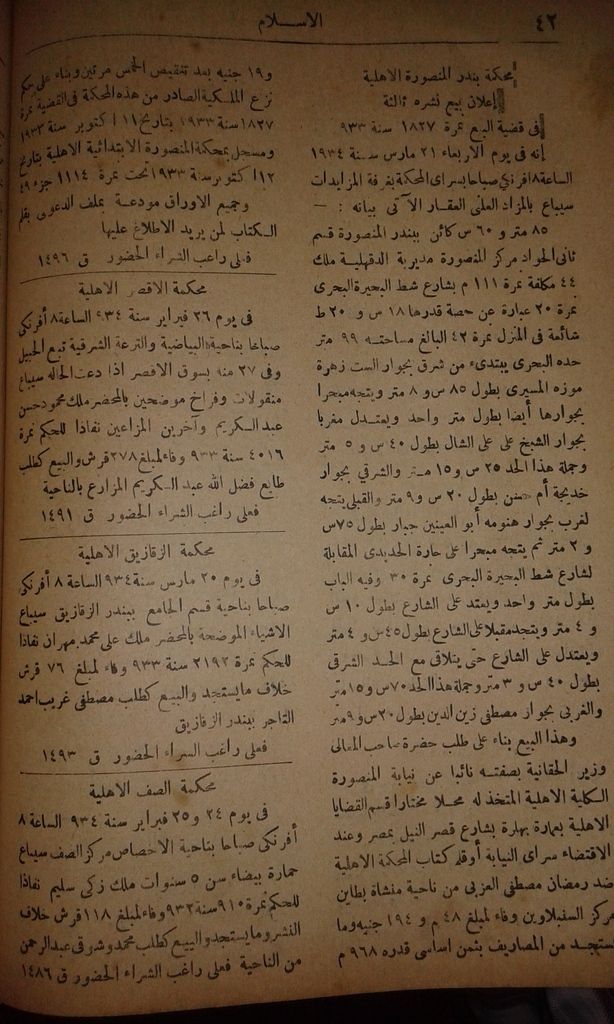 ٤٢
الاسلام
محكمة بندر المنصورة الاهلية
إعلان بيع نشره ثالثة
فى قضية البيع نمرة ١٨٢٧ سنة ٩٣٣
إنه فى يوم الاربعاء ٢١ مارس سنة ١٩٣٤
الساعة ٨ افرنكى صباحا بسراى المحكمة بغرفة المزايدات
سيباع بالمزاد العلنى العقار الآتى بيانه : —
٨٥ متر و ٦٠ س كائن ببندر المنصورة قسم
ثانى الحوار مركز المنصورة مديرية الدقهلية ملك
٤٤ مكلفة نمرة ١١١ م بشارع شط البحيرة البحرى
نمرة ٢٠ عبارة عن حصة قدرها ١٨ س و ٢٠ ط
شائعة فى المنزل نمرة ٤٢ البالغ مساحته ٩٩ متر
حده البحرى يبتدىء من شرق بجوار الست زهرة
موزه المسيرى بطول ٨٥ س و ٨ متر ويتجه مبحرا
بجوارها أيضا بطول متر واحد ويعتدل مغربا
بجوار الشيخ على على الشال بطول ٤٠ س و ٥ متر
وجملة هذا الحد ٢٥ س و ١٥ متر والشرقي بجوار
خديجة أم حسن بطول ٢٠ س و ٩ متر والقبلى يتجه
لغرب بجوار هنومه أبو العينين جبار بطول ٧٥ س
و ٢ متر ثم يتجه مبحرا على حارة الحديدى المقابلة
لشارع شط البحيرة البحرى نمرة ٣٠ وفيه الباب
بطول متر واحد ويمتد على الشارع بطول ١٠ س
و ٤ متر ويتجه مقبلا على الشارع بطول ٤٥ س و ٤ متر
ويعتدل على الشارع حتى يتلاقى مع الحد الشرقى
بطول ٤٠ س و ٣ متر وجملة هذا الحد ٧٠ س و ١٥ متر
والغربى بجوار مصطفى زين الدين بطول ٢٠ س و ٩ متر
وهذا البيع بناء على طلب حضرة صاحب المعالى
وزير الحقانية بصفته نائبا عن نيابة المنصورة
الكلية الاهلية المتخذ له محلا مختارا قسم القضايا
الاهلية بعمارة بهلرة بشارع قصر النيل بمصر وعند
الاقتضاء سراى النيابة أوقلم كتاب المحكمة الاهلية
ضد رمضان مصطفى العزبى من ناحية منشاة بطاين
مركز السنبلاوين وفاء لمبلغ ٤٨ م و ١٩٤ جنيه وما
يستجد من المصاريف بثمن اساسى قدره ٩٦٨ م
و ١٩ جنيه بعد تنقيص الخمس مرتين وبناء على حكم
نزع الملكية الصادر من هذه المحكمة فى القضية نمرة
١٨٢٧ سنة ١٩٣٣ بتاريخ ١١ اكتوبر سنة ١٩٣٣
ومسجل بمحكمة المنصورة الابتدائية الاهلية بتاريخ
١٢ اكتوبر سنة ١٩٣٣ تحت نمرة ١١١٤ جزء ٤٩
وجميع الاوراق مودعة بملف الدعوى بقلم
الكتاب لمن يريد الاطلاع عليها
فعلى راغب الشراء الحضور ق ١٤٩٦
محكمة الاقصر الاهلية
فى يوم ٢٦ فبراير سنة ٩٣٤ الساعة ٨ أفرنكى
صباحا بناحية البياضية والترعة الشرقية تبع الحبيل
وفى ٢٧ منه بسوق الاقصر اذا دعت الحاله سيباع
منقولات وفراخ موضحين بالمحضر ملك محمود حسن
عبد الكريم وآخرين المزاعين نفاذا للحكم نمرة
٤٠١٦ سنة ٩٣٣ وفاء لمبلغ ٢٧٨ قرش والبيع كطلب
طايع فضل الله عبد الكريم المزارع بالناحية
فعلى راغب الشراء الحضور ق ١٤٩١
محكمة الزقازيق الاهلية
فى يوم ٢٠ مارس سنة ٩٣٤ الساعة ٨ أفرنكى
صباحا بناحية قسم الجامع ببندر الزقازيق سيباع
الاشياء الموضحة بالمحضر ملك على محمد مهران نفاذا
للحكم نمرة ٢١٩٢ سنة ٩٣٣ وفاء لمبلغ ٧٦ قرش
خلاف ما يستجد والبيع كطلب مصطفى غريب احمد
التاجر ببندر الزقازيق
فعلى راغب الشراء الحضور ق ١٤٩٣
محكمة الصف الاهلية
فى يوم ٢٤ و ٢٥ فبراير سنة ٩٣٤ الساعة ٨
أفرنكى صباحا بناحية الاخصاص مركز الصف سيباع
حمارة بيضاء سن ٥ سنوات ملك زكى سليم نفاذا
للحكم نمرة ٩١٠ سنة ٩٣٢ وفاء لمبلغ ١١٨ قرش خلاف
النشر وما يستجد والبيع كطلب محمد وشرقى عبد الرحمن
من الناحية فعلى راغب الشراء الحضور ق ١٤٨٦